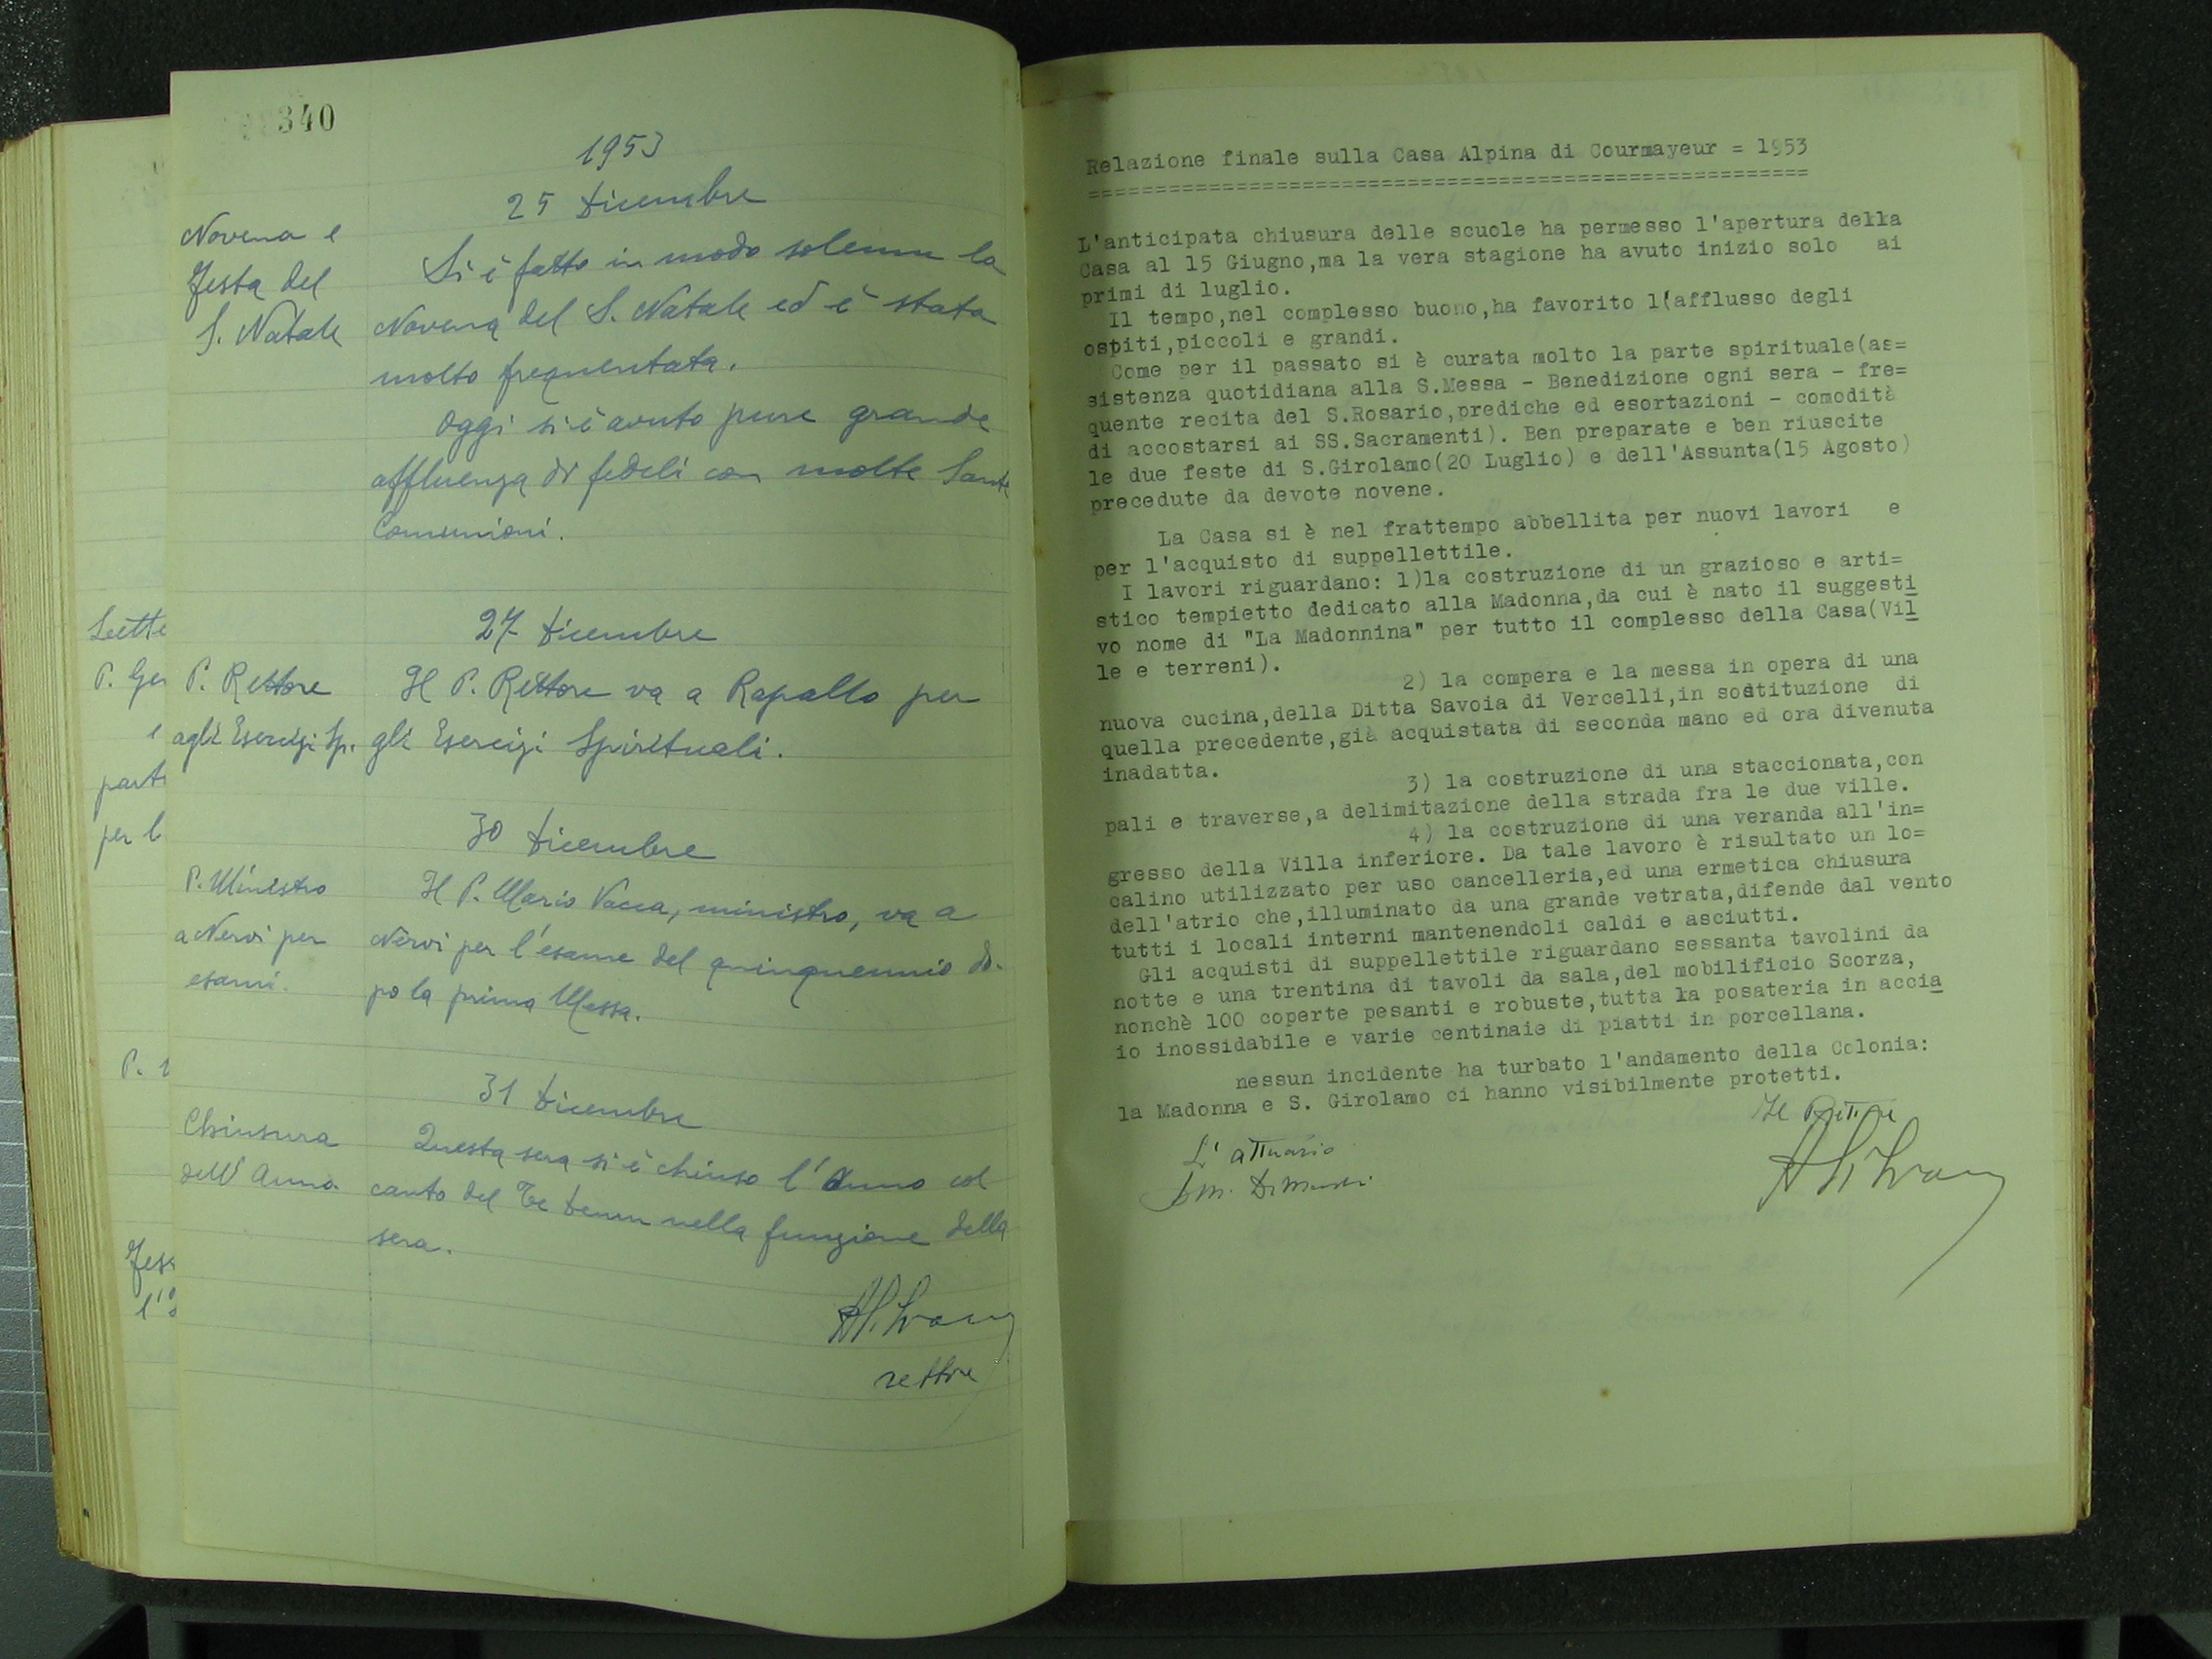 340
1953
25 Dicembre
Novena e
festa del
S. Natale
Si è fatto in modo solenne la
Novena del S. Natale ed è stata
molto frequentata.
Oggi si è avuto pure grande
affluenza di fedeli con molte Sante
Comunioni.
27 Dicembre
P. Rettore
agli Esercizi Sp.
Il P. Rettore va a Rapallo per
gli Esercizi Spirituali.
30 Dicembre
P. Ministro
a Nervi per
esami.
Il P. Mario Vacca, ministro, va a
Nervi per l'esame del quinquennio do-
po la prima Messa.
31 Dicembre
Chiusura
dell'Anno
Questa sera si è chiuso l'Anno col
canto del Te Deum nella funzione della
sera.
rettore
Relazione finale sulla Casa Alpina di Courmayeur = 1953
L'anticipata chiusura delle scuole ha permesso l'apertura della
Casa al 15 Giugno,ma la vera stagione ha avuto inizio solo ai
primi di luglio.
Il tempo,nel complesso buono,ha favorito l(afflusso degli
ospiti,piccoli e grandi.
Come per il passato si è curata molto la parte spirituale(as=
sistenza quotidiana alla S.Messa - Benedizione ogni sera - fre=
quente recita del S.Rosario,prediche ed esortazioni - comodità
di accostarsi ai SS.Sacramenti). Ben preparate e ben riuscite
le due feste di S.Girolamo(20 Luglio) e dell'Assunta(15 Agosto)
precedute da devote novene.
La Casa si è nel frattempo abbellita per nuovi lavori e
per l'acquisto di suppellettile.
I lavori riguardano: 1)la costruzione di un grazioso e arti=
stico tempietto dedicato alla Madonna,da cui è nato il suggesti
vo nome di "La Madonnina" per tutto il complesso della Casa(Vil
le e terreni).
2) la compera e la messa in opera di una
nuova cucina,della Ditta Savoia di Vercelli,in sostituzione di
quella precedente,già acquistata di seconda mano ed ora divenuta
inadatta.
3) la costruzione di una staccionata,con
pali e traverse,a delimitazione della strada fra le due ville.
4) la costruzione di una veranda all'in=
gresso della Villa inferiore. Da tale lavoro è risultato un lo=
calino utilizzato per uso cancelleria,ed una ermetica chiusura
dell'atrio che,illuminato da una grande vetrata,difende dal vento
tutti i locali interni mantenendoli caldi e asciutti.
Gli acquisti di suppellettile riguardano sessanta tavolini da
notte e una trentina di tavoli da sala,del mobilificio Scorza,
nonchè 100 coperte pesanti e robuste,tutta la posateria in accia
io inossidabile e varie centinaie di piatti in porcellana.
nessun incidente ha turbato l'andamento della Colonia:
la Madonna e S. Girolamo ci hanno visibilmente protetti.
Il Rettore
L'attuario